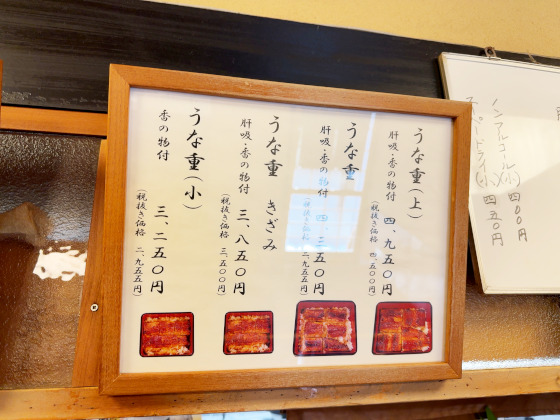 うな重（上）
肝吸・香の物付
四、九五〇円
（税抜き価格 四、五〇〇円）
うな重
肝吸・香の物付
四、二五〇円
うな重 きざみ
肝吸・香の物付
三、八五〇円
（税抜き価格 三、五〇〇円）
うな重（小）
香の物付
三、二五〇円
（税抜き価格 二、九五五円）
ノンアルコール（小）四〇〇円
スーパードライ（小）四五〇円